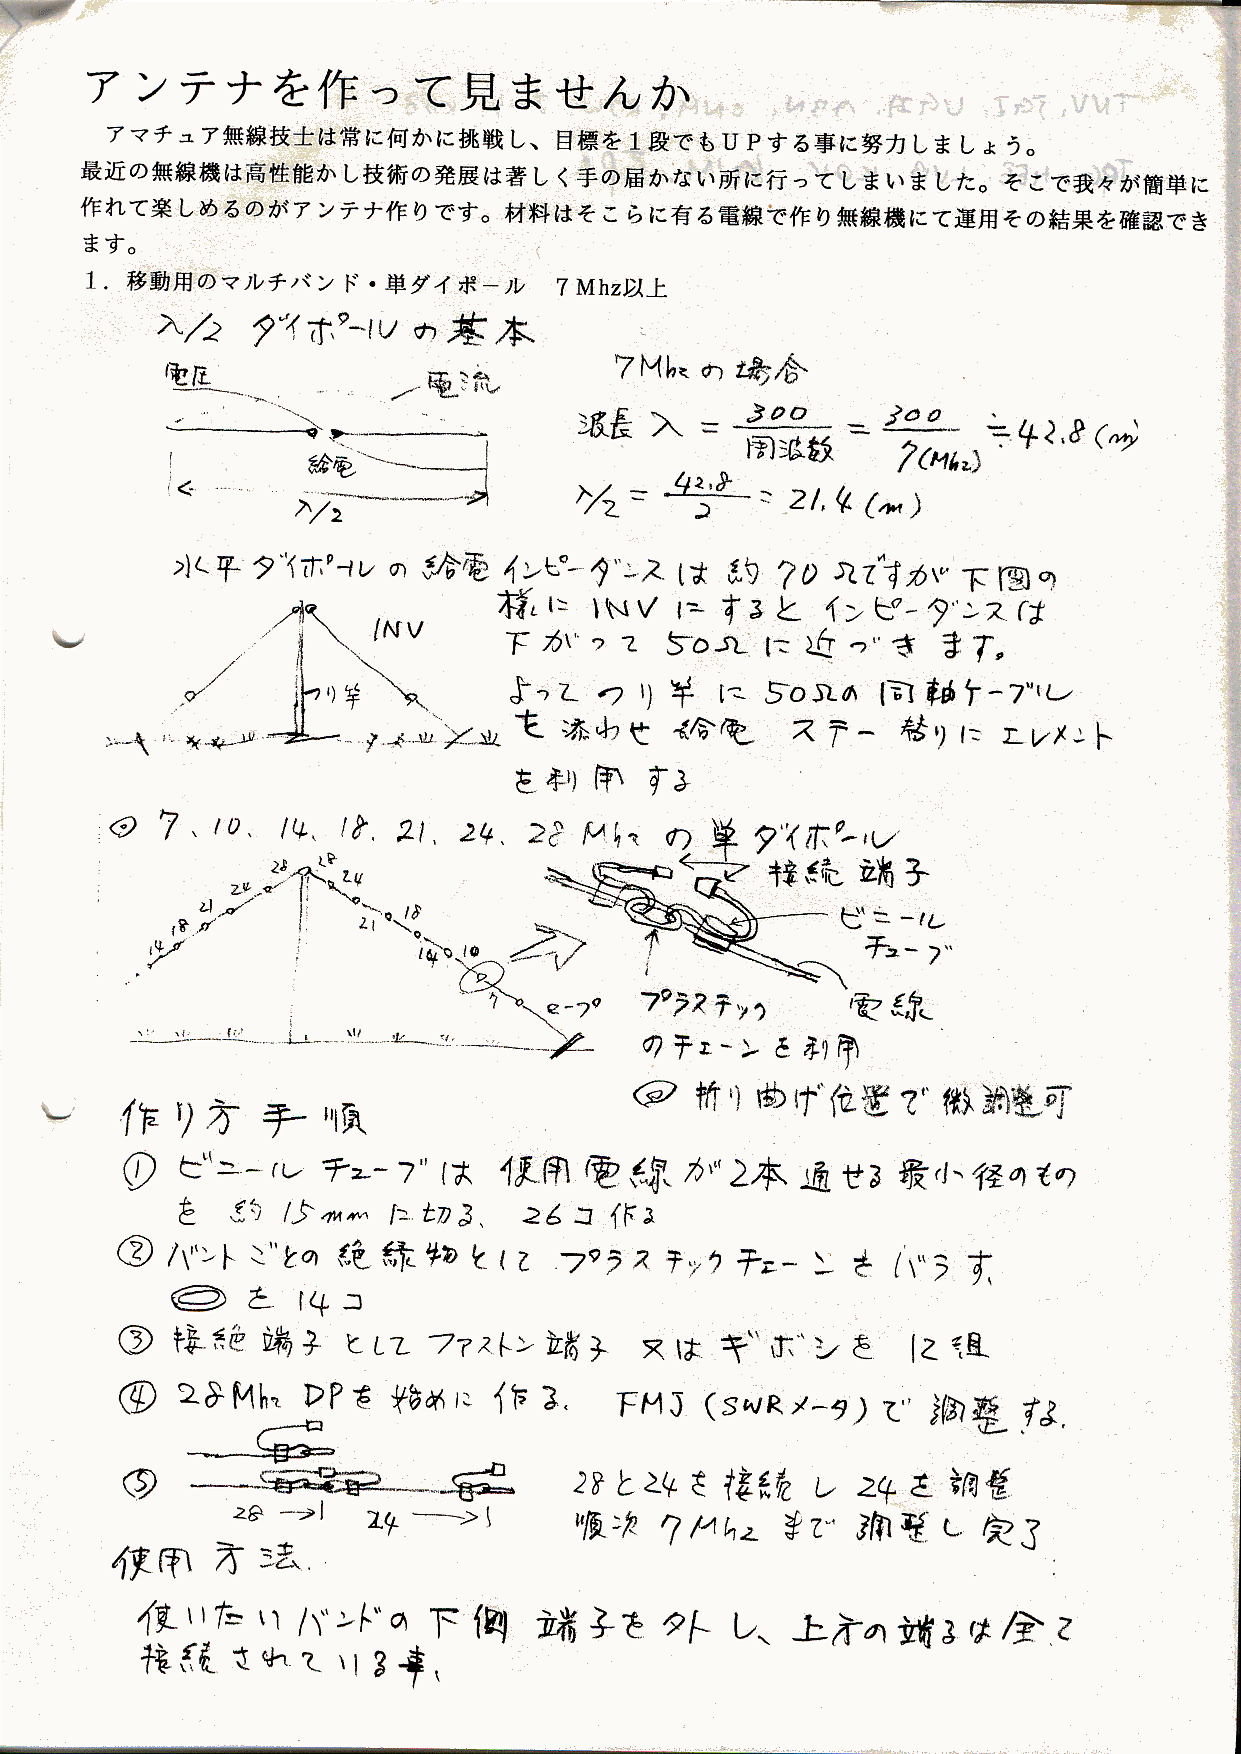 アンテナを作って見ませんか
アマチュア無線技士は常に何かに挑戦し、目標を１段でもＵＰする事に努力しましょう。
最近の無線機は高性能かし技術の発展は著しく手の届かない所に行ってしまいました。そこで我々が簡単に
作れて楽しめるのがアンテナ作りです。材料はそこらに有る電線で作り無線機にて運用その結果を確認でき
ます。
１．移動用のマルチバンド・単ダイポール　７Mhz以上
λ/2 ダイポールの基本
電圧
電流
給電
λ/2
7Mhzの場合
波長 λ = 300/周波数 = 300/7(Mhz) ≒ 42.8(m)
λ/2 = 42.8/2 = 21.4(m)
水平ダイポールの給電インピーダンスは約70Ωですが下図の
様に INV にすると インピーダンスは
下がって 50Ωに近づきます。
よって つり竿に 50Ωの同軸ケーブル
を添わせ 給電 ステー替りに エレメント
を利用する
INV
つり竿
◎ 7、10、14、18、21、24、28 Mhz の 単ダイポール
28 28
24 24
21 21
18 18
14 14
10
7
ロープ
接続端子
ビニール
チューブ
電線
プラスチック
のチェーンを利用
◎ 折り曲げ位置で微調整可
作り方手順
① ビニールチューブは 使用電線が2本通せる最小径のもの
を 約15mmに切る、26コ作る
② バンドごとの絶縁物として プラスチックチェーンをバラす、
を 14コ
③ 接続端子として ファストン端子 又はギボシを 12組
④ 28Mhz DPを始めに作る. FMJ (SWRメータ)で 調整する.
⑤
28 24
28と24を接続し 24を調整
順次 7Mhzまで 調整し完了
使用方法.
使いたいバンドの下側 端子を外し、上方の端子は全て
接続されている事、